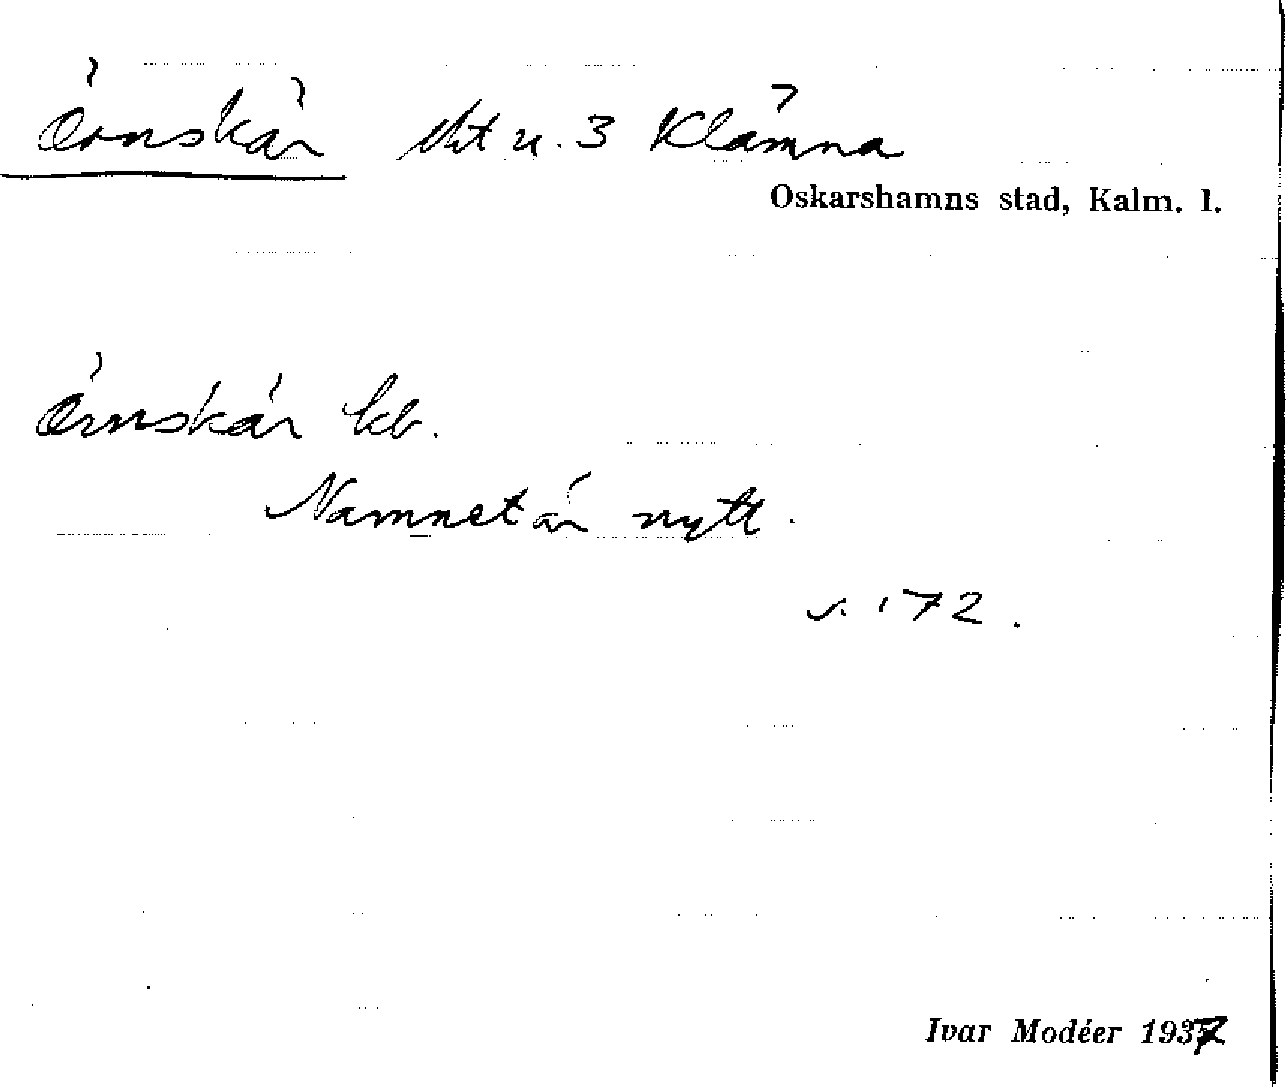 Örnskär u. 3 Klämna
Oskarshamns stad, Kalm. l.
Örnskär kb.
Namnet är nytt.
s. 172.
Ivar Modéer 1937